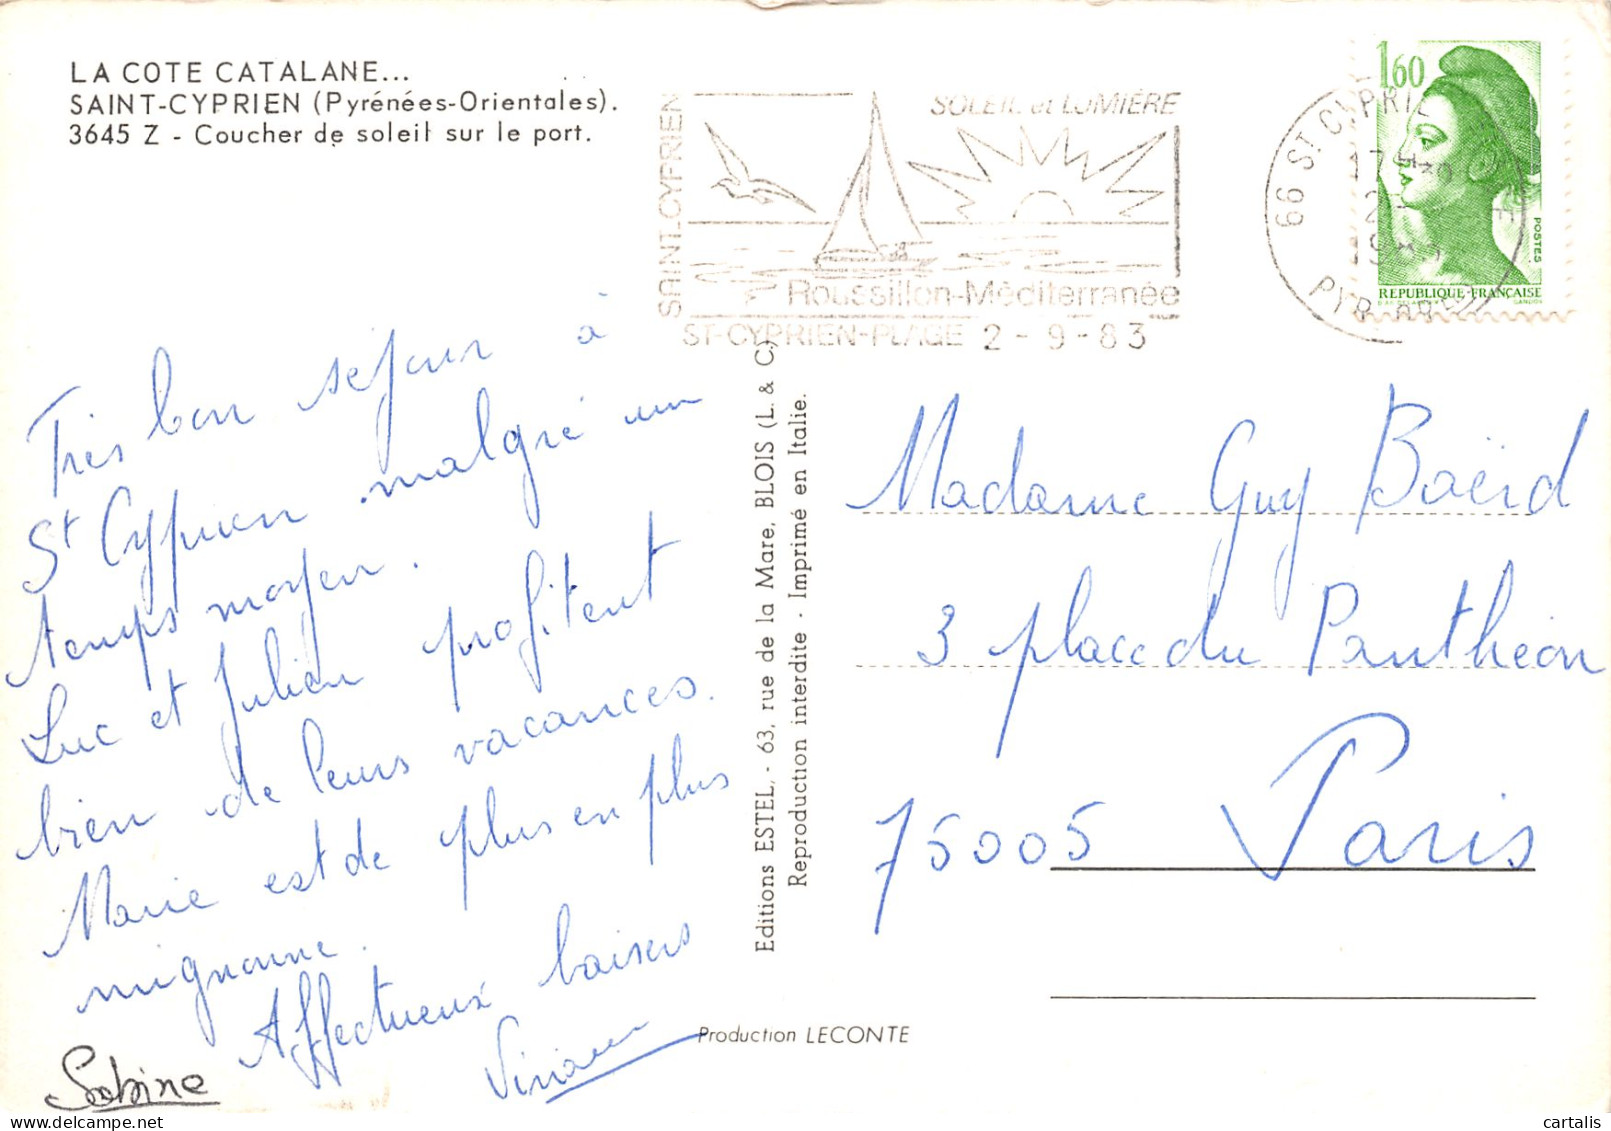 LA COTE CATALANE...
SAINT-CYPRIEN (Pyrénées-Orientales).
3645 Z - Coucher de soleil sur le port.
SAINT-CYPRIEN
SOLEIL et LUMIÈRE
Roussillon-Méditerranée
ST-CYPRIEN-PLAGE 2-9-83
66 ST CYPRIE
PYR.
1,60
POSTES
REPUBLIQUE-FRANÇAISE
Très bon séjour à
St Cyprien malgré un
temps moyen.
Luc et Julien profitent
bien de leurs vacances.
Marie est de plus en plus
mignonne.
Affectueux baisers
Viviane
Sabine
Editions ESTEL, - 63, rue de la Mare, BLOIS (L. & C.)
Reproduction interdite - Imprimé en Italie.
Production LECONTE
Madame Guy Baërd
3 place du Panthéon
75005 Paris
cartalis
www.delcampe.net